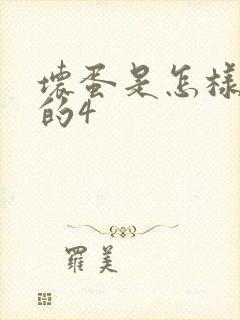 壞蛋是怎樣
的4
羅美